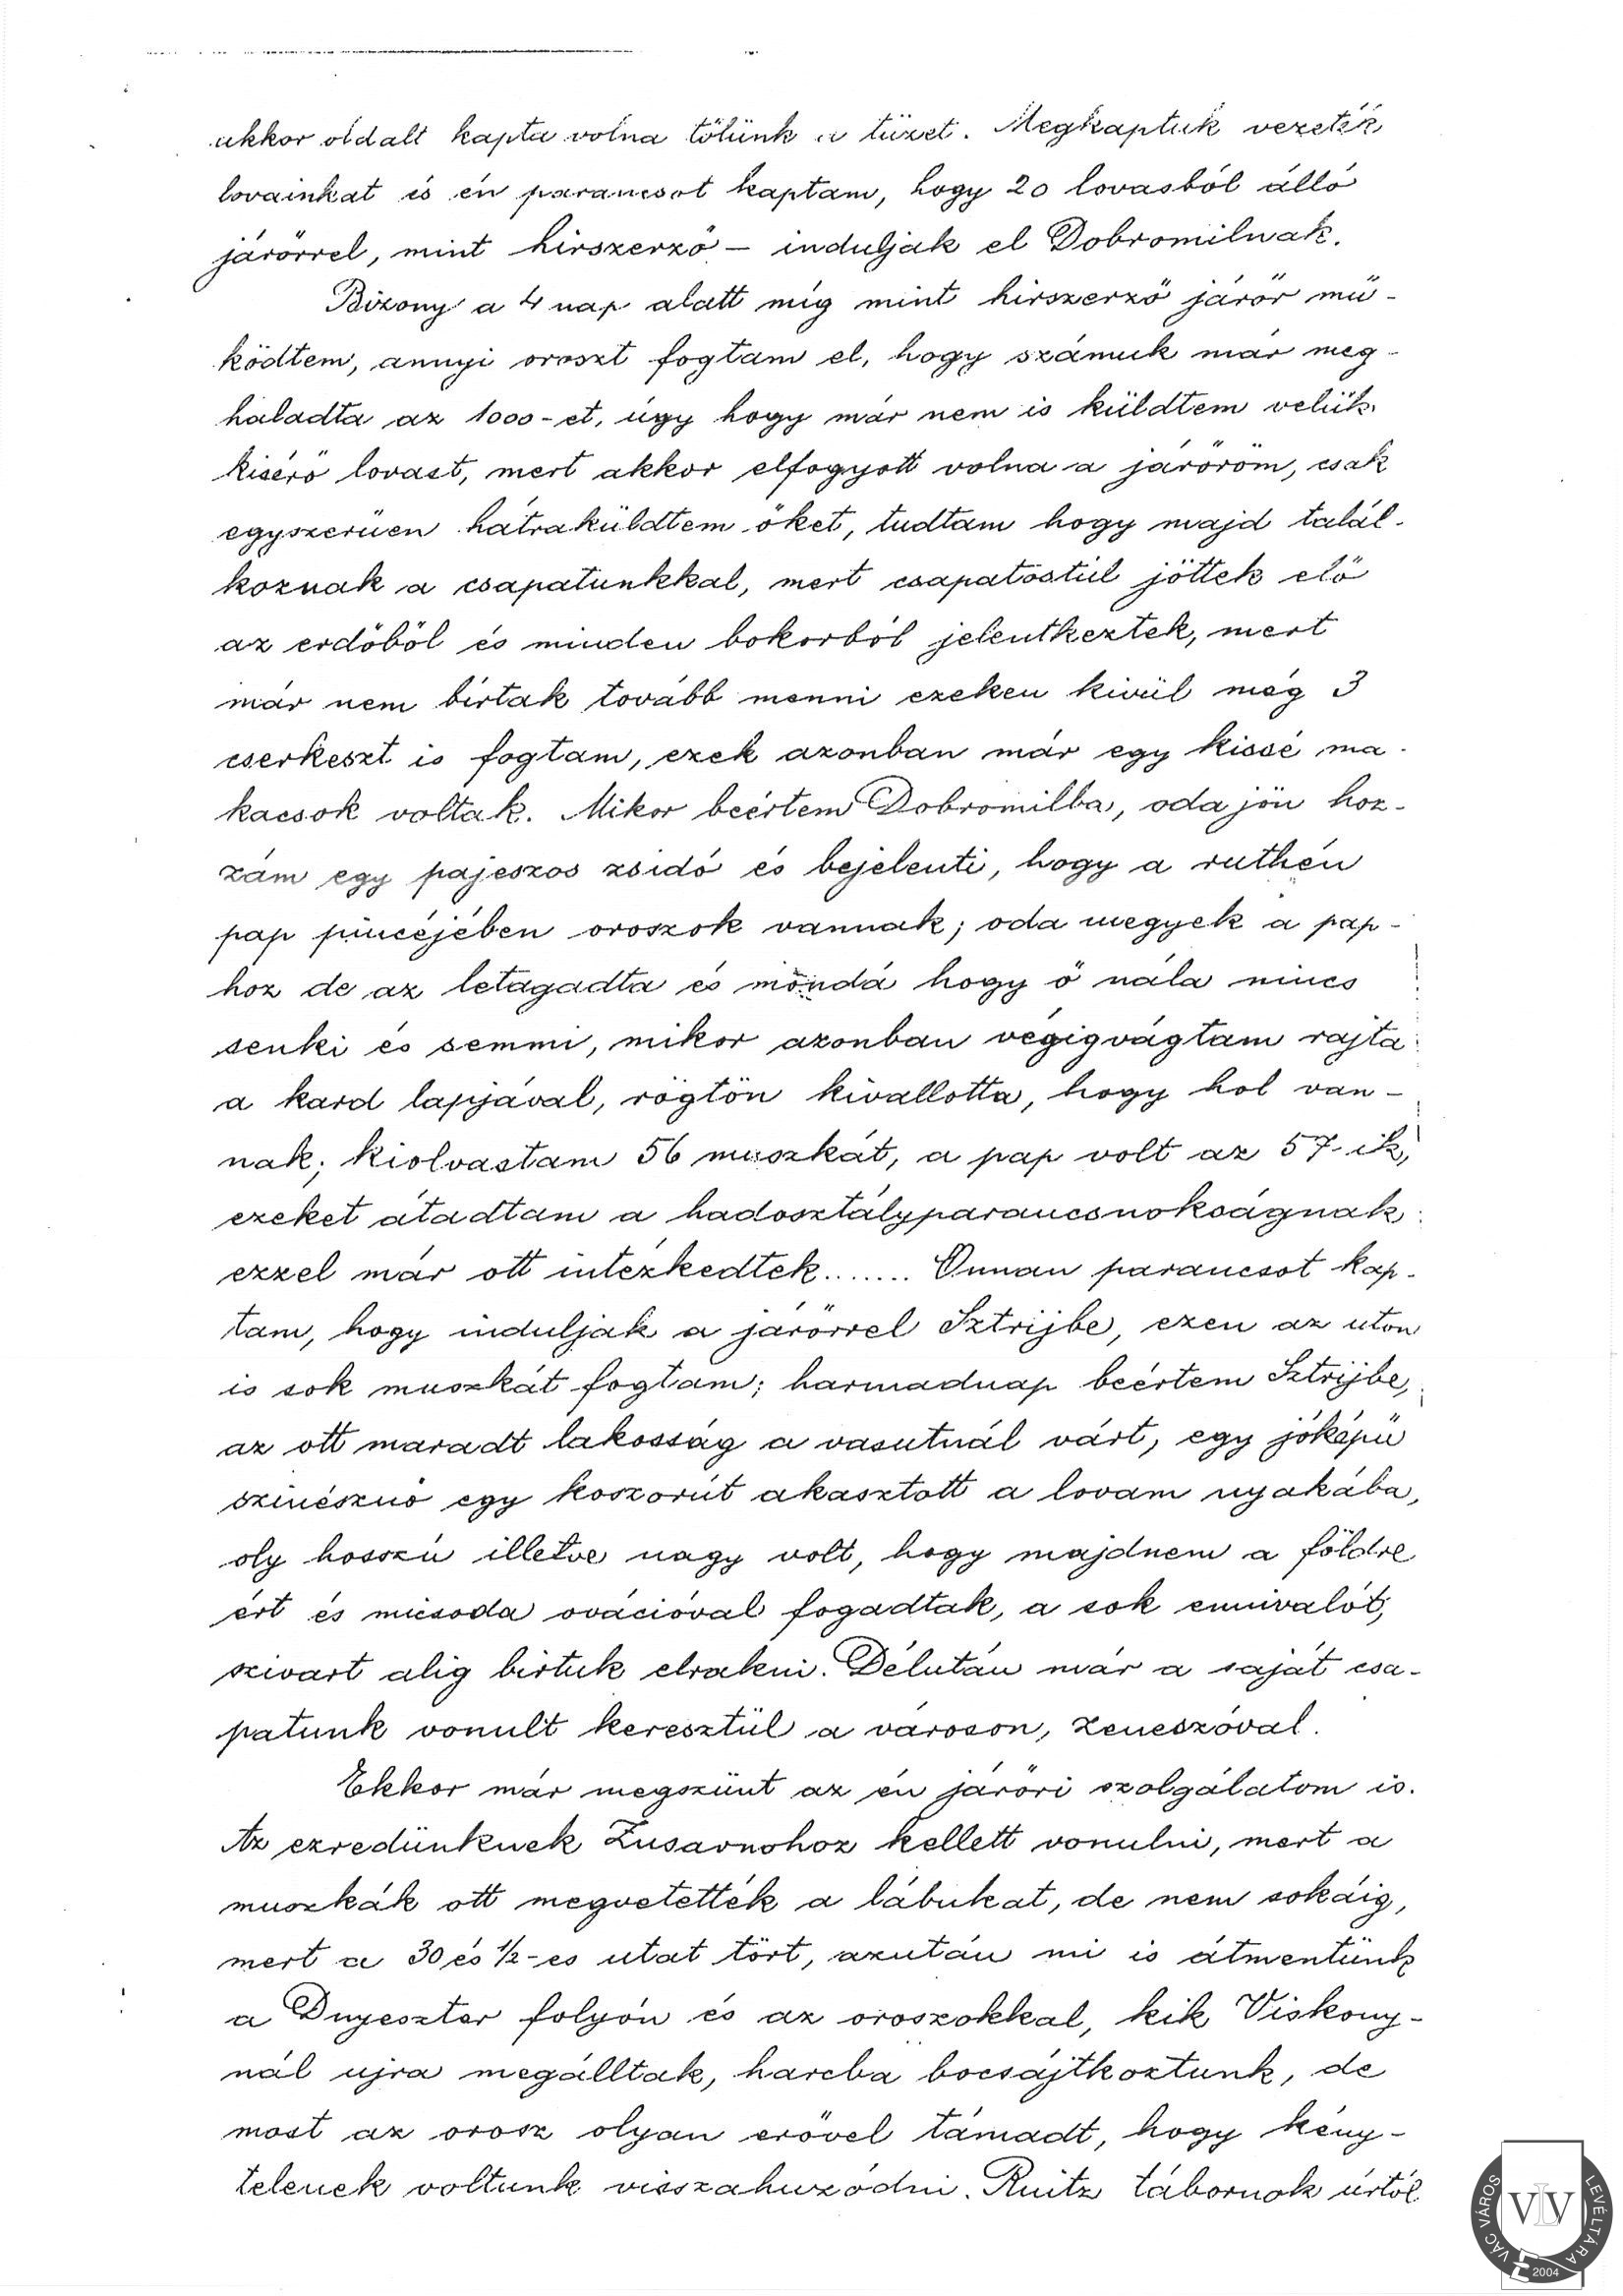 akkor oldalt kapta volna tőlünk a tüzet. Megkaptuk vezeték
lovainkat és én parancsot kaptam, hogy 20 lovasból álló
járőrrel, mint hirszerző – induljak el Dobromilnak.
Bizony a 4 nap alatt míg mint hirszerző járőr mű-
ködtem, annyi oroszt fogtam el, hogy számuk már meg-
haladta az 1000-et, úgy hogy már nem is küldtem velük
kisérő lovast, mert akkor elfogyott volna a járőröm, csak
egyszerüen hátraküldtem őket, tudtam hogy majd talál-
koznak a csapatunkkal, mert csapatostúl jöttek elő
az erdőből és minden bokorból jelentkeztek, mert
már nem bírtak tovább menni ezeken kivül még 3
cserkeszt is fogtam, ezek azonban már egy kissé ma-
kacsok voltak. Mikor beértem Dobromilba, oda jön hoz-
zám egy pajeszos zsidó és bejelenti, hogy a ruthén
pap pincéjében oroszok vannak; oda megyek a pap-
hoz de az letagadta és mondá hogy ő nála nincs
senki és semmi, mikor azonban végigvágtam rajta
a kard lapjával, rögtön kivallotta, hogy hol van-
nak; kiolvastam 56 muszkát, a pap volt az 57-ik,
ezeket átadtam a hadosztályparancsnokságnak
ezzel már ott intézkedtek....... Onnan parancsot kap-
tam, hogy induljak a járőrrel Sztrijbe, ezen az uton
is sok muszkát fogtam; harmadnap beértem Sztrijbe,
az ott maradt lakosság a vasutnál várt, egy jóképű
szinésznő egy koszorút akasztott a lovam nyakába,
oly hosszú illetve nagy volt, hogy majdnem a földre
ért és micsoda ovációval fogadtak, a sok ennivalót,
szivart alig birtuk elrakni. Délután már a saját csa-
patunk vonult keresztül a városon, zeneszóval.
Ekkor már megszünt az én járőri szolgálatom is.
Az ezredünknek Zusavnohoz kellett vonulni, mert a
muszkák ott megvetették a lábukat, de nem sokáig,
mert a 30 és ½-es utat tört, azután mi is átmentünk
a Dnyeszter folyón és az oroszokkal, kik Viskony-
nál ujra megálltak, harcba bocsájtkoztunk, de
most az orosz olyan erővel támadt, hogy kény-
telenek voltunk visszahuzódni. Ruitz tábornok úrtól
VÁC VÁROS LEVÉLTÁRA
VLV
2004